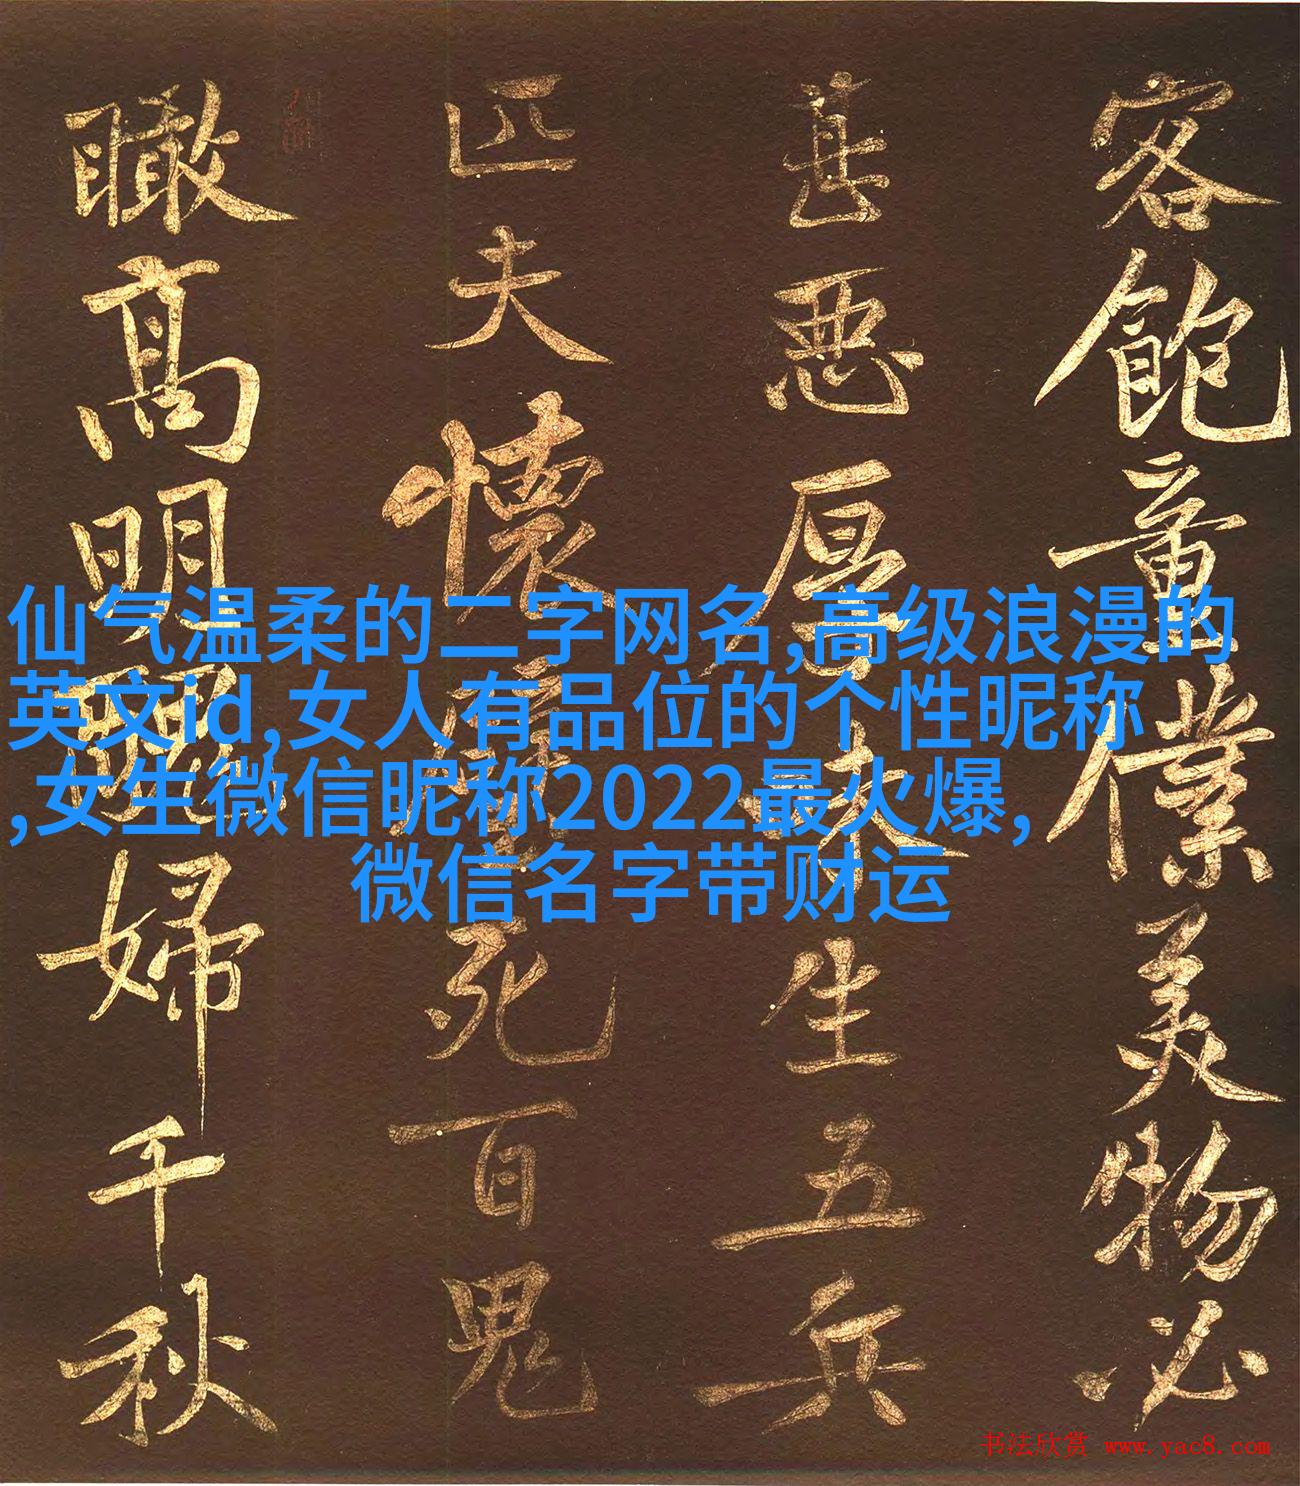 客飽童僕美物必
甚惡厚味生五兵
匹夫懷璧死百鬼
瞰高明婦千秋
仙气温柔的二字网名,高级浪漫的
英文id,女人有品位的个性昵称
,女生微信昵称2022最火爆,
微信名字带财运
书法欣赏 www.yac8.com